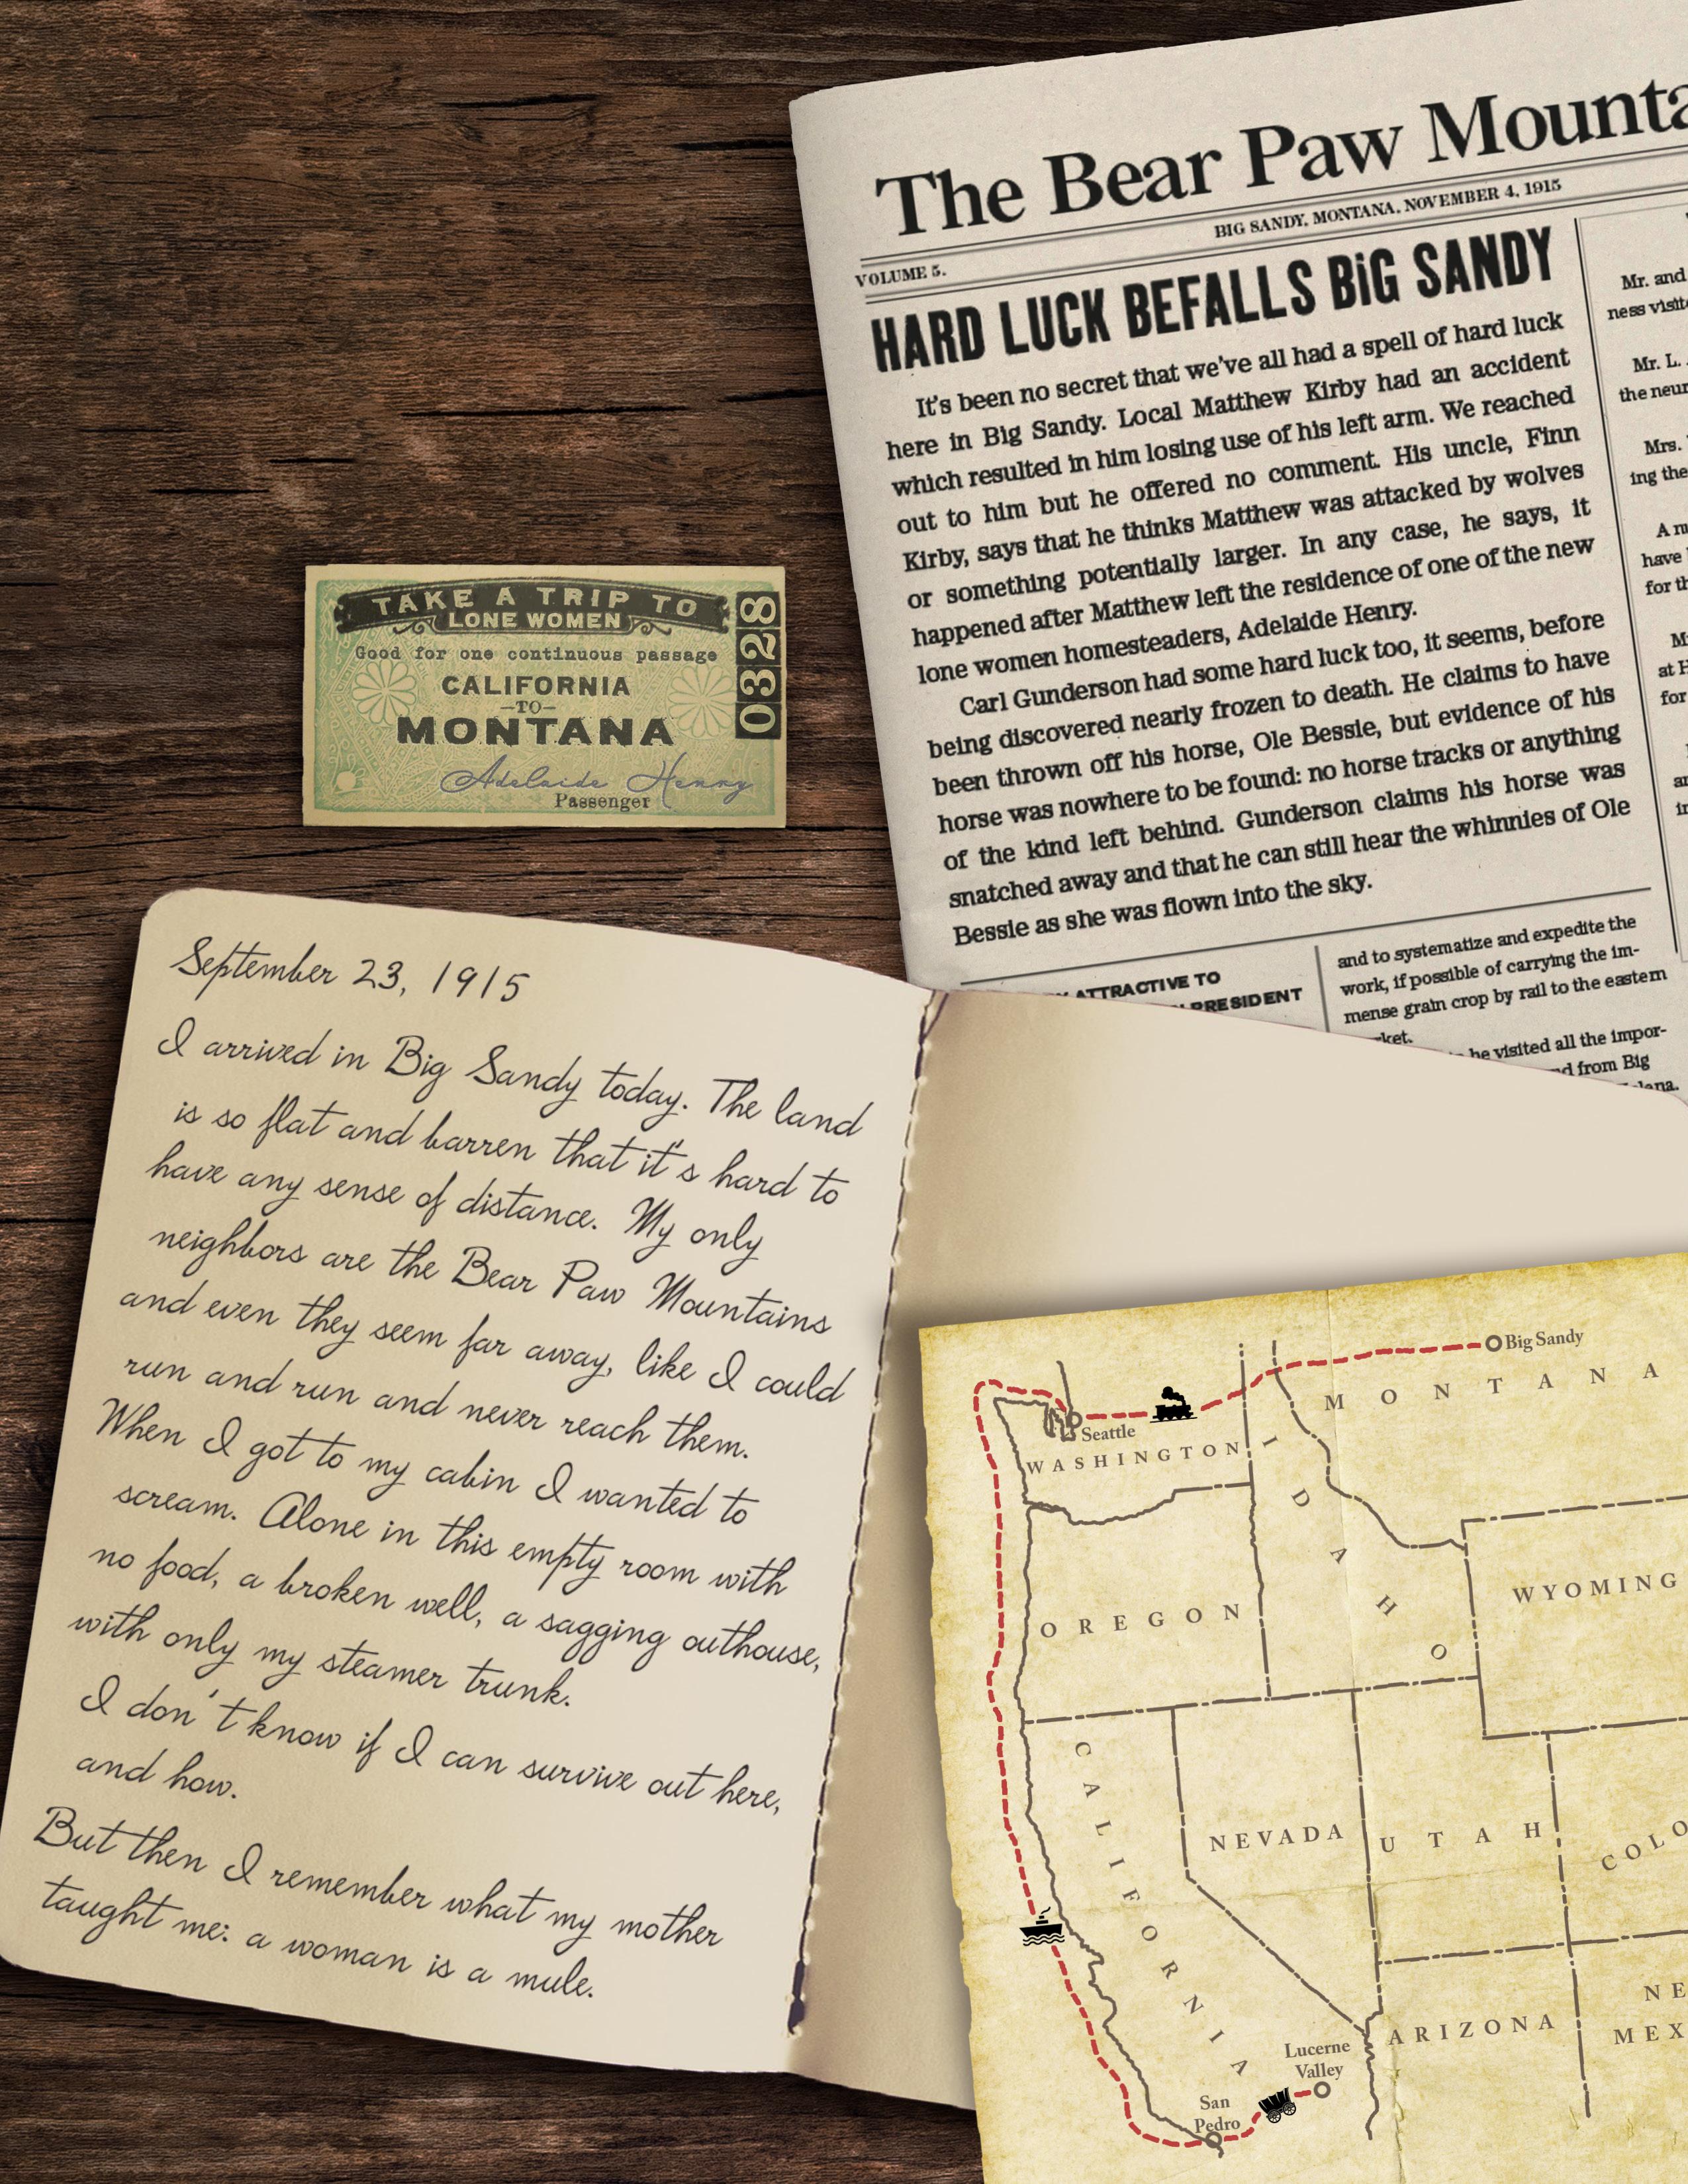 The Bear Paw Mounta
BIG SANDY, MONTANA, NOVEMBER 4, 1915
VOLUME 5.
HARD LUCK BEFALLS BiG SANDY
It's been no secret that we've all had a spell of hard luck
here in Big Sandy. Local Matthew Kirby had an accident
which resulted in him losing use of his left arm. We reached
out to him but he offered no comment. His uncle, Finn
Kirby, says that he thinks Matthew was attacked by wolves
or something potentially larger. In any case, he says, it
happened after Matthew left the residence of one of the new
lone women homesteaders, Adelaide Henry.
Carl Gunderson had some hard luck too, it seems, before
being discovered nearly frozen to death. He claims to have
been thrown off his horse, Ole Bessie, but evidence of his
horse was nowhere to be found: no horse tracks or anything
of the kind left behind. Gunderson claims his horse was
snatched away and that he can still hear the whinnies of Ole
Bessie as she was flown into the sky.
Mr. and
ness visit
Mr. L.
the neur
Mrs.
ing the
have
for th
at H
for
ATTRACTIVE TO
PRESIDENT
and to systematize and expedite the
work, if possible of carrying the im-
mense grain crop by rail to the eastern
ket.
he visited all the impor-
d from Big
TAKE A TRIP TO
LONE WOMEN
Good for one continuous passage
CALIFORNIA
-TO-
MONTANA
Adelaide Henry
Passenger
0328
September 23, 1915
I arrived in Big Sandy today. The land
is so flat and barren that it's hard to
have any sense of distance. My only
neighbors are the Bear Paw Mountains
and even they seem far away, like I could
run and run and never reach them.
When I got to my cabin I wanted to
scream. Alone in this empty room with
no food, a broken well, a sagging outhouse,
with only my steamer trunk.
I don't know if I can survive out here,
and how.
But then I remember what my mother
taught me: a woman is a mule.
Big Sandy
MONTANA
Seattle
WASHINGTON
IDAHO
OREGON
WYOMING
CALIFORNIA
NEVADA
UTAH
COLO
ARIZONA
NE
MEX
Lucerne
Valley
San
Pedro